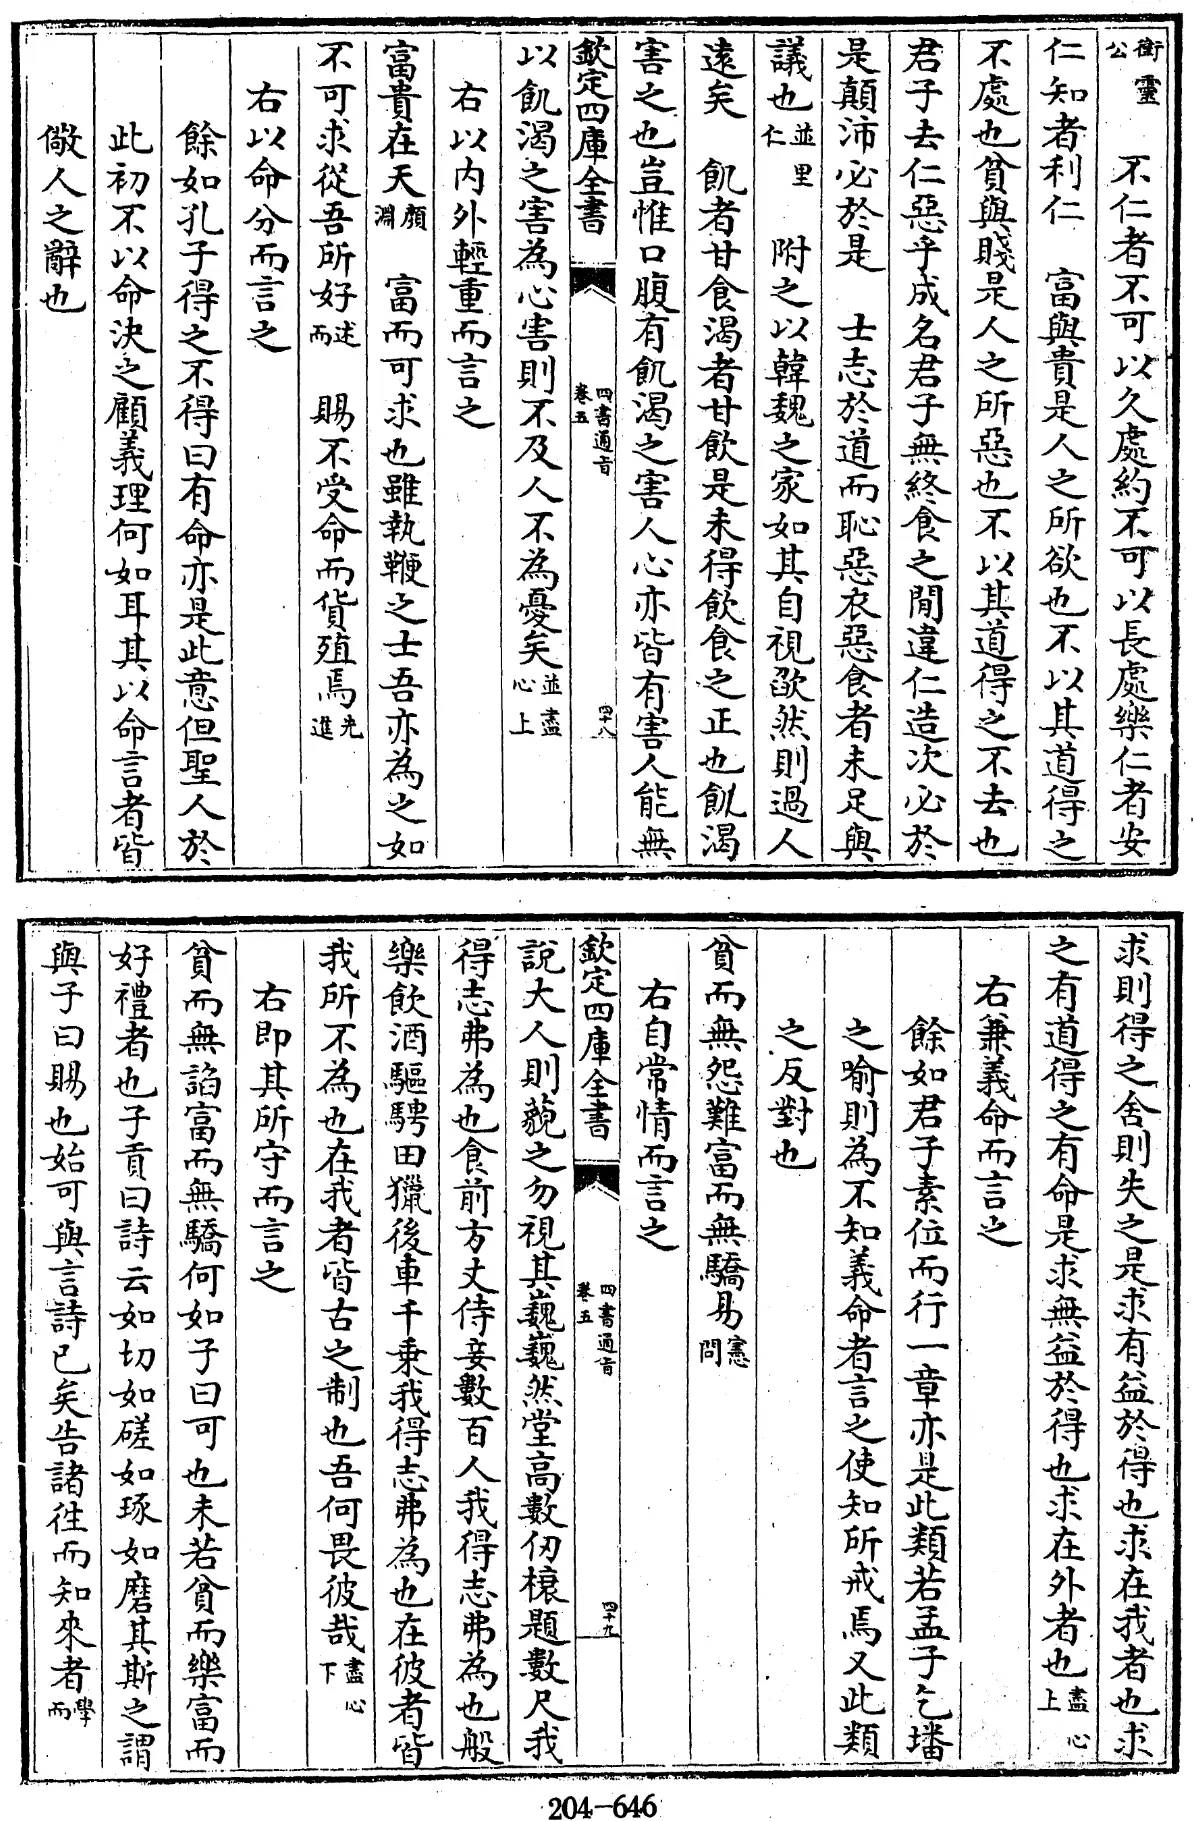 衛靈公　不仁者不可以久處約不可以長處樂仁者安
仁知者利仁　富與貴是人之所欲也不以其道得之
不處也貧與賤是人之所惡也不以其道得之不去也
君子去仁惡乎成名君子無終食之間違仁造次必於
是顛沛必於是　士志於道而恥惡衣惡食者未足與
議也並里仁　附之以韓魏之家如其自視欿然則過人
遠矣　飢者甘食渴者甘飲是未得飲食之正也飢渴
害之也豈惟口腹有飢渴之害人心亦皆有害人能無
欽定四庫全書　四書通旨卷五　四十八
以飢渴之害為心害則不及人不為憂矣並盡心上
右以內外輕重而言之
富貴在天顏淵　富而可求也雖執鞭之士吾亦為之如
不可求從吾所好述而　賜不受命而貨殖焉先進
右以命分而言之
餘如孔子得之不得曰有命亦是此意但聖人於
此初不以命決之顧義理何如耳其以命言者皆
儆人之辭也
求則得之舍則失之是求有益於得也求在我者也求
之有道得之有命是求無益於得也求在外者也盡心上
右兼義命而言之
餘如君子素位而行一章亦是此類若孟子乞墦
之喻則為不知義命者言之使知所戒焉又此類
之反對也
貧而無怨難富而無驕易憲問
右自常情而言之
欽定四庫全書　四書通旨卷五　四十九
說大人則藐之勿視其巍巍然堂高數仞榱題數尺我
得志弗為也食前方丈侍妾數百人我得志弗為也般
樂飲酒驅騁田獵後車千乘我得志弗為也在彼者皆
我所不為也在我者皆古之制也吾何畏彼哉盡心下
右即其所守而言之
貧而無諂富而無驕何如子曰可也未若貧而樂富而
好禮者也子貢曰詩云如切如磋如琢如磨其斯之謂
與子曰賜也始可與言詩已矣告諸徃而知來者學而
204-646